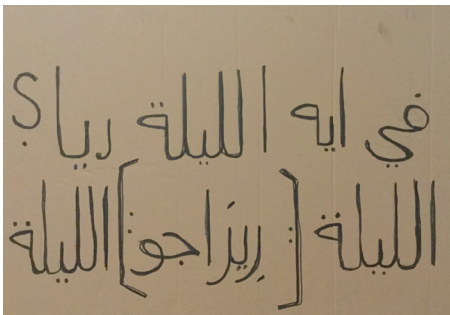 في ايه الليلة ديا؟
الليلة [: رِيزَاجو :] الليلة